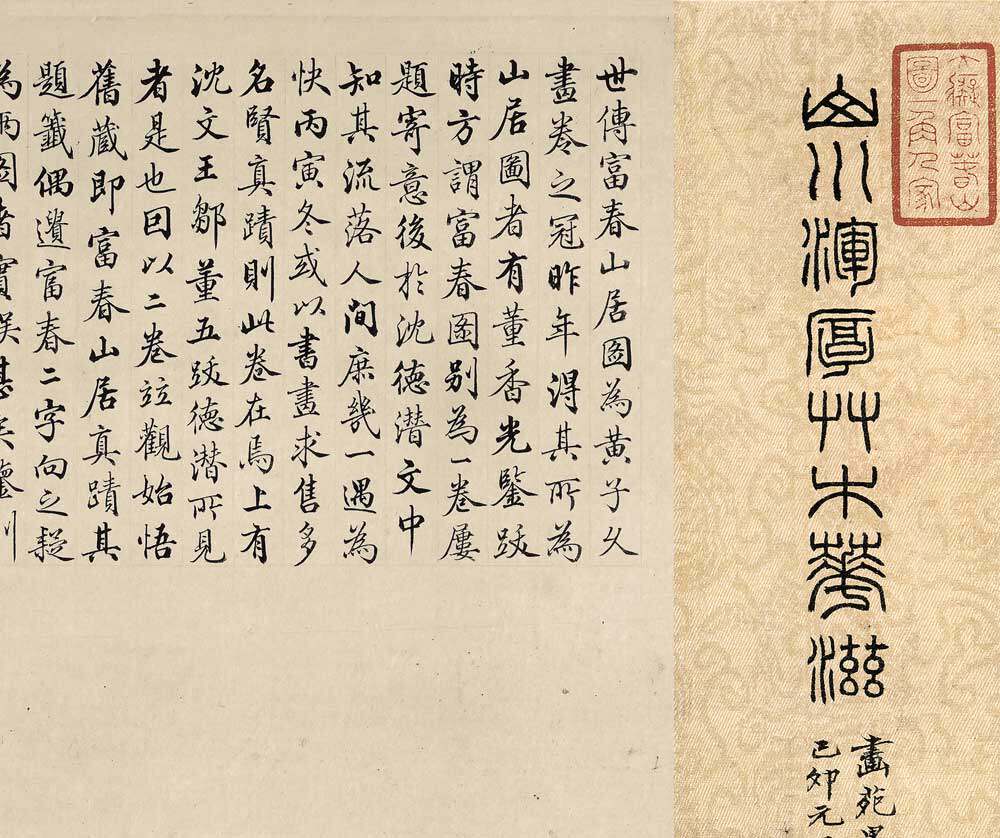 大癡富春山
圖一角人家
山川渾厚艸木華滋
畫苑
己卯元
世傳富春山居圖為黃子久
畫卷之冠昨年得其所為
山居圖者有董香光鑒跋
時方謂富春圖別為一卷屢
題寄意後於沈德潛文中
知其流落人間庶幾一遇為
快丙寅冬或以書畫求售多
名賢真蹟則此卷在焉上有
沈文王鄒董五跋德潛所見
者是也因以二卷竝觀始悟
舊藏即富春山居真蹟其
題籤偶遺富春二字向之疑
為兩圖者實誤甚矣鑒別